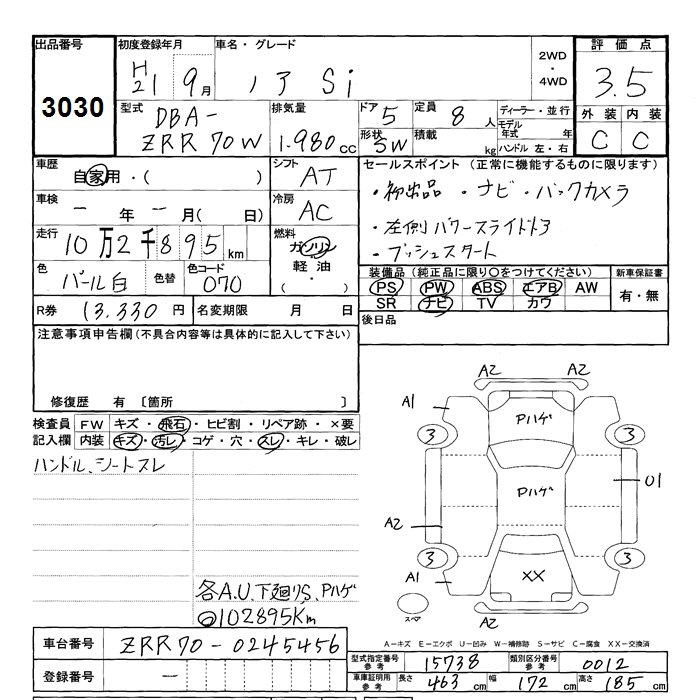 出品番号 初度登録年月 車名・グレード 2WD・4WD 評価点
3030 H21 9月 ノア Si 3.5
型式 DBA-ZRR70W 排気量 1.980cc ドア 5 定員 8人 ディーラー・並行 外装 内装
形状 SW 積載 kg モデル年式 年 ハンドル 左・右 C C
車歴 自家用・( ) シフト AT セールスポイント (正常に機能するものに限ります)
車検 ー年ー月( 日) 冷房 AC ・初出品 ・ナビ・バックカメラ
走行 10万2千895km 燃料 ガソリン 軽油 ( ・ ) ・左側パワースライドドア
・プッシュスタート
色 パール白 色替 色コード 070 装備品 (純正品に限り○をつけてください) 新車保証書
PS PW ABS エアB AW 有・無
SR ナビ TV カワ
R券 13.330円 名変期限 月 日 後日品
注意事項申告欄(不具合内容等は具体的に記入して下さい)
修復歴 有 〔箇所 〕
検査員 FW キズ・飛石・ヒビ割・リペア跡・×要
記入欄 内装 キズ・汚レ・コゲ・穴・スレ・キレ・破レ
ハンドル、シートスレ
各A.U.下廻りS、Pハゲ
102895Km
A2 A2
A1 Pハゲ
3 3
Pハゲ 01
A2
3 3
A1 XX
スペア A2
A-キズ E-エクボ U-凹み W-補修跡 S-サビ C-腐食 XX-交換済
車台番号 ZRR70-0245456
型式指定番号 参考 15738 類別区分番号 参考 0012
登録番号 ー
車庫証明用 参考 長さ 463cm 幅 172cm 高さ 185cm